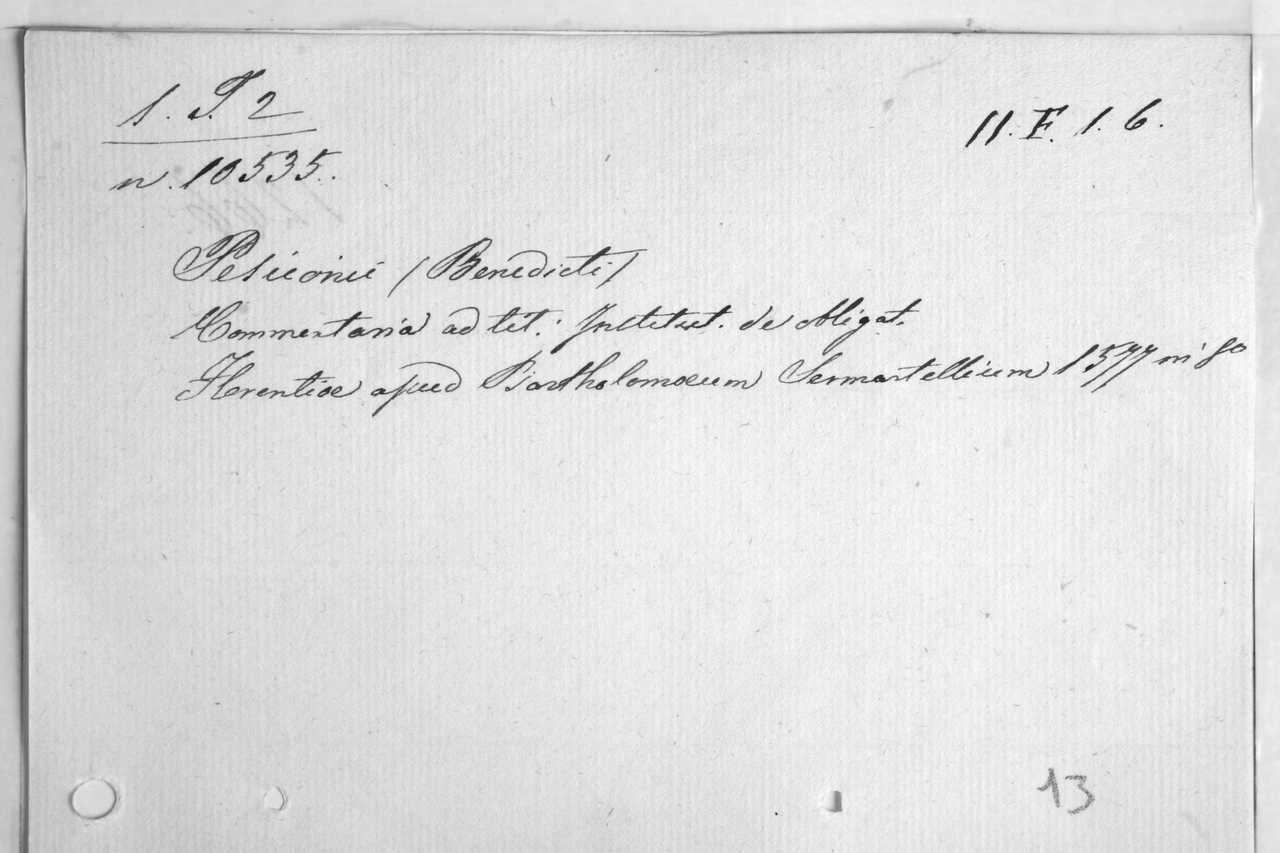 1. T. 2
11. F. 1. 6.
n. 10535.
(Benedicti)
Commentaria ad tit. Institut. de obligat.
Florentiae apud Bartholomaeum Sermartellium 1577 in 8o
13